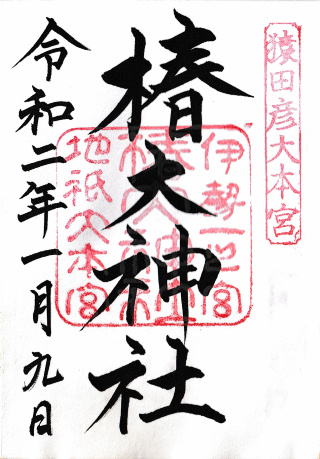 猿田彦大本宮
椿大神社
伊勢一之宮
椿大神社
地祇大本宮
令和二年一月九日